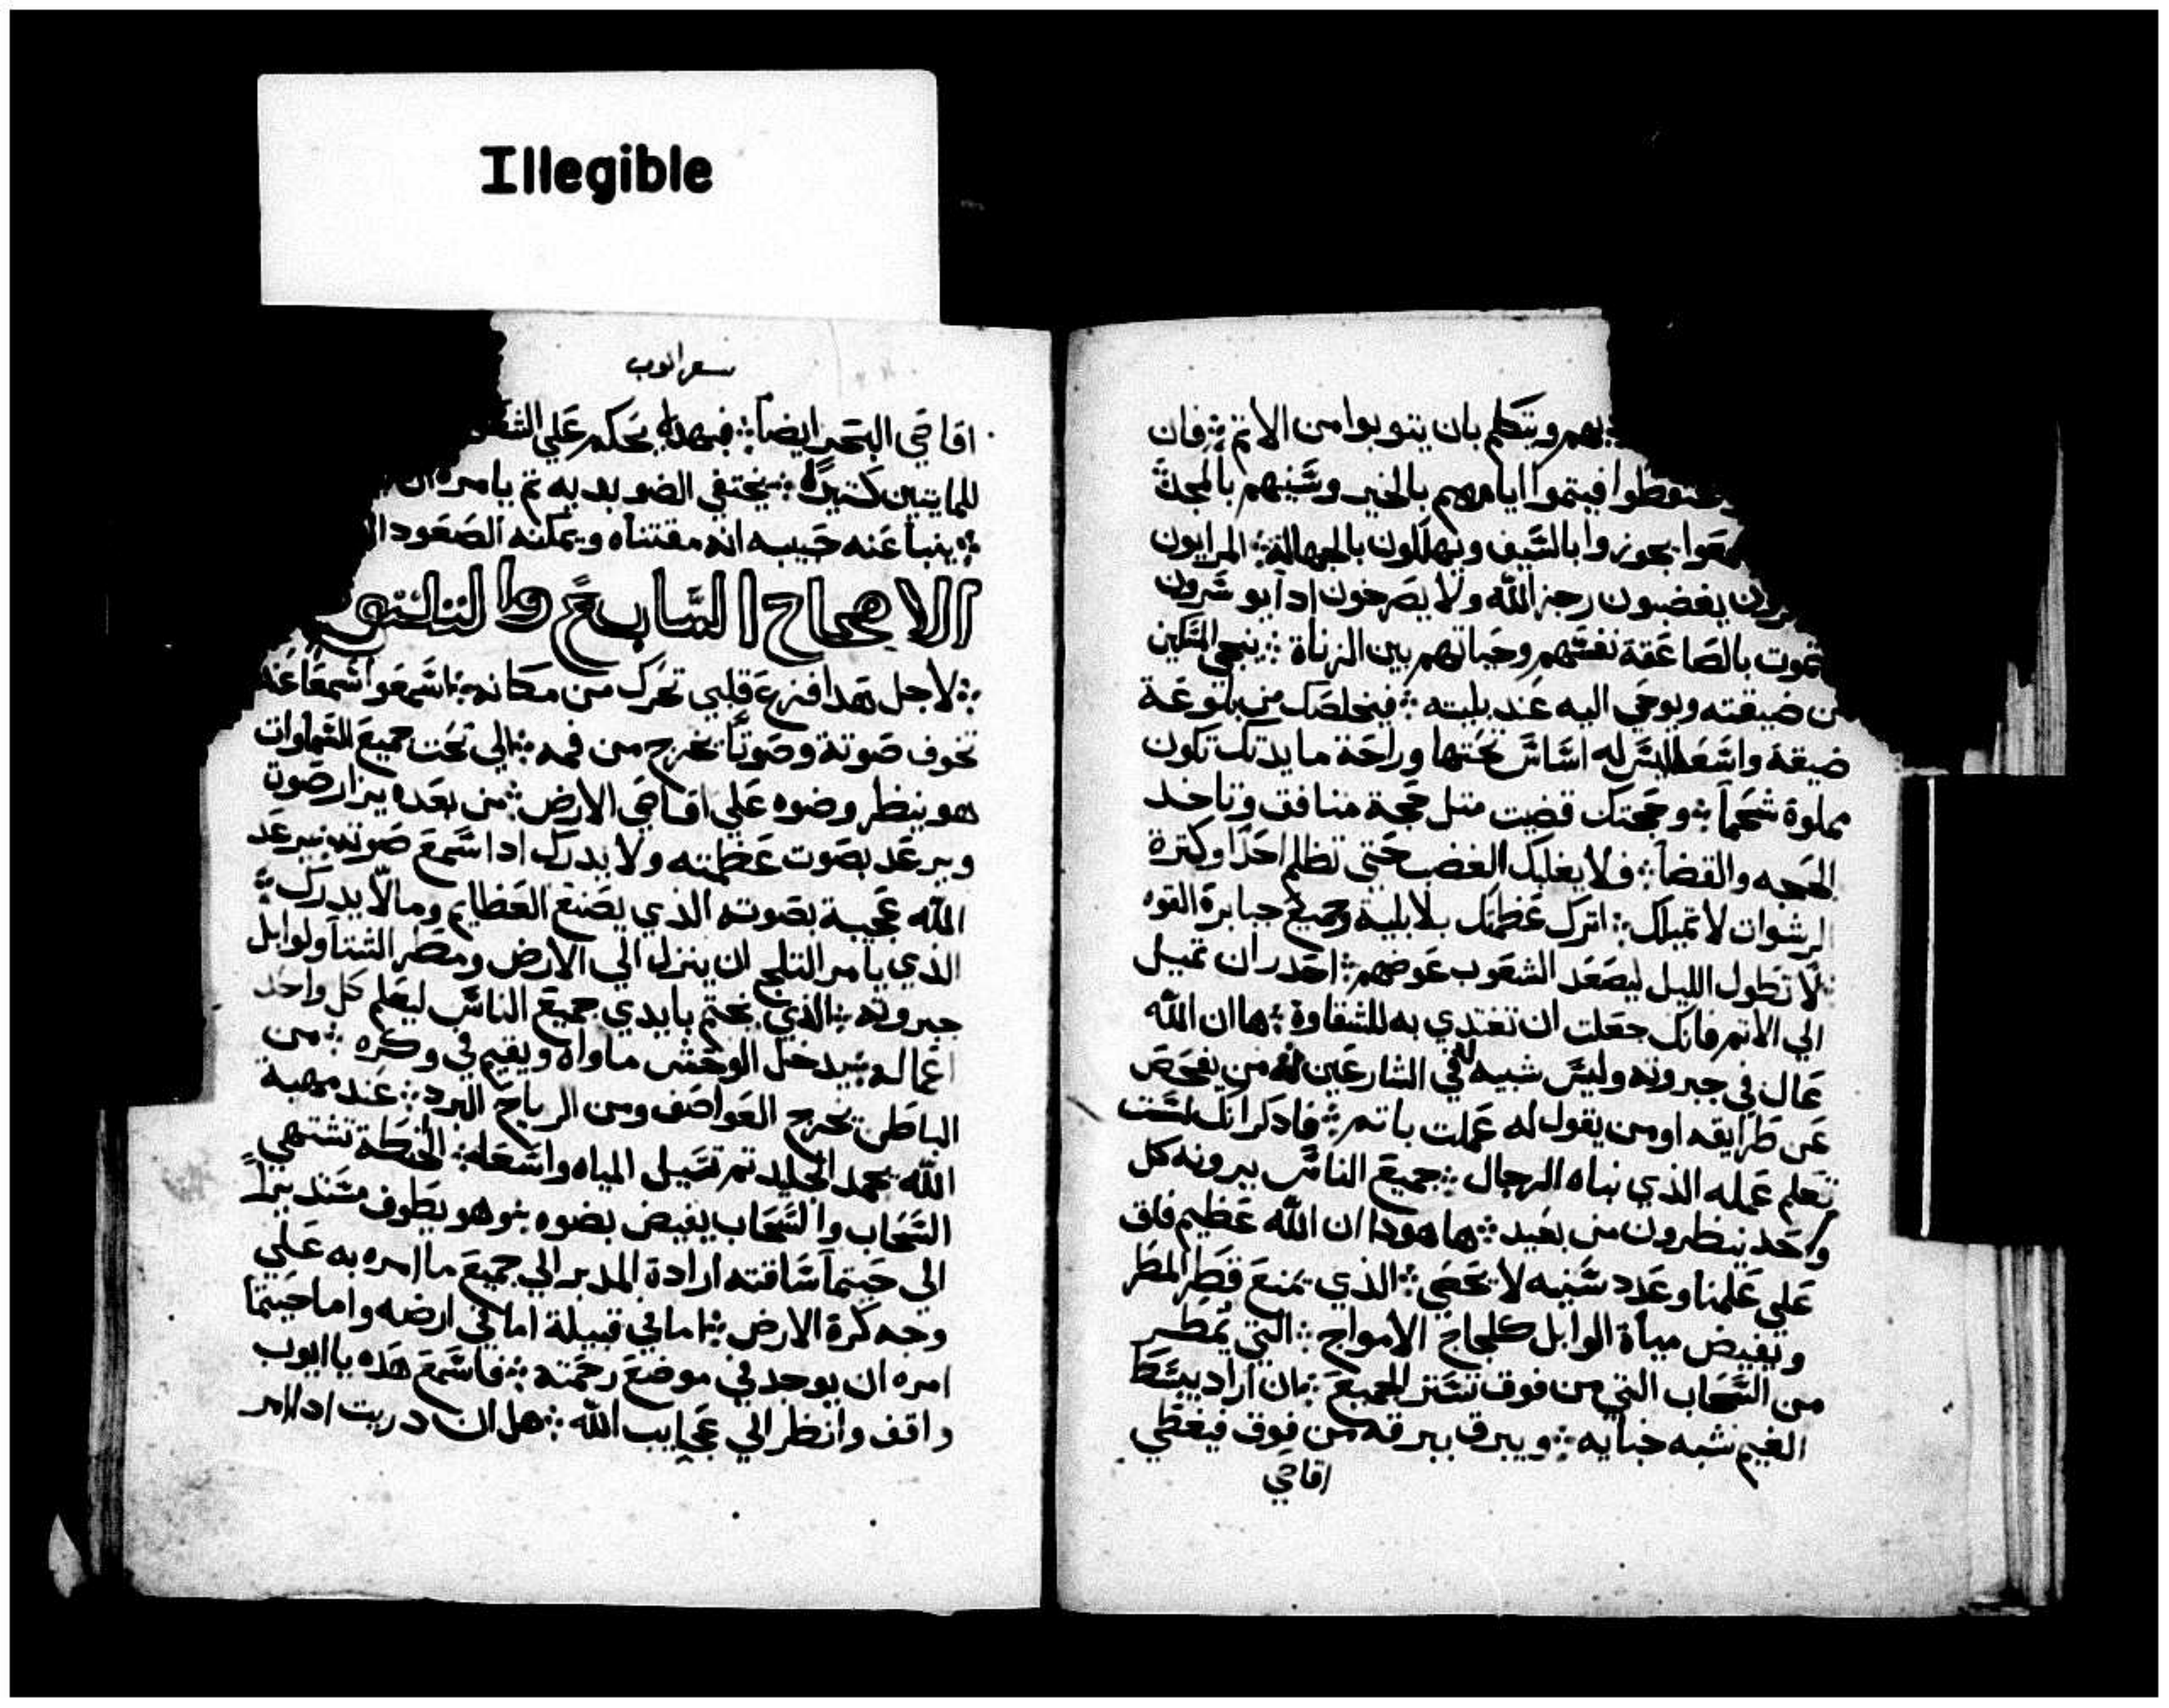 Illegible
ويتكلم بان يتوبوا من الاتم ؞ فان
فيتموا ايامهم بالخير وسنيهم بالمجد ؞
يجوزوا بالسيف ويهللون بالجهالة ؞ المرايون
يغضبون رجز الله ولا يصرخون ادا يوسرون
تموت بالصاعقة نفسهم وحياتهم بين الزناة ؞ ينجي المسكين
من ضيقته ويوحي اليه عند بليته ؞ فيخلصك من
ضيقة واسعه ليس له اساس تحتها وراحة مايدتك تكون
مملوة شحماً ؞ وحجتك قضيت متل حجة منافق وتاخد
الحجه والقضا ؞ فلا يغلبك الغضب حتى تظلم احداً وكترة
الرشوات لا تميلك ؞ اترك عظمتك بلا بلية وجميع جبابرة القوه
لا تطول الليل ليصعد الشعوب عوضهم ؞ احدر ان تميل
الي الاتم فانك جعلت ان تغتدي به للشقاوة ؞ ها ان الله
عال في جبروته وليس شبيه له في الشارعين من يفحص
عن طرايقه او من يقول له عملت باتم ؞ فادكر انك لست
تعلم عمله الذي نباه الرجال ؞ جميع الناس يرونه كل
واحد ينظرون من بعيد ؞ ها هودا ان الله عظيم فاق
علي علمنا وعدد سنيه لا تحصي ؞ الذي يمنع قطر المطر
وتفيض مياة الوابل كلجاج الامواج ؞ التي تمطر
من السحاب التي من فوق تستر الجميع ؞ ان اراد يبسط
الغيم شبه خبايه ؞ ويبرق ببرقه من فوق فيغطي
اقاصي
سفر ايوب
اقاصي البحر ايضاً ؞ فبهدا يحكم علي
للمايتين كتيرة ؞ يختفي الضو بيديه تم يامره ان
؞ ينبا عنه حبيبه انه مقتناه ويمكنه الصعود
الاصحاح السابع والتلتو
؞ لاجل هدا فزع قلبي تحرك من مكانه ؞ اسمعوا سمعا عند
تخوف صوتة وصوتاً تخرج من فمه ؞ الي تحت جميع السماوات
هو ينظر وضوه علي اقاصي الارض ؞ من بعده يزار صوت
ويرعد بصوت عظمته ولا يدرك ادا سمع صوته ؞ يرعد
الله عجيبة بصوته الذي يصنع العظايم وما لا يدرك ؞
الذي يامر التلج ان ينزل الي الارض ومطر الشتا ولوابل
جبروته ؞ الذي يختم بايدي جميع الناس ليعلم كل واحد
اعماله ؞ يدخل الوحش ماواه ويقيم في وكره ؞ من
الباطن تخرج العواصف ومن الرياح البرد ؞ عند مهبة
الله يجمد الجليد تم تسيل المياه واسعا ؞ الحنطة تشتهي
السحاب والسحاب يفيض بضوه ؞ وهو يطوف مستديراً
الي حيتما ساقته ارادة المدبر الي جميع ما امره به علي
وجه كرة الارض ؞ اما في قبيلة اما في ارضه واما حيتما
امره ان يوجد في موضع رحمته ؞ فاسمع هده يا ايوب
واقف وانظر الي عجايب الله ؞ هل ان دريت اد امر